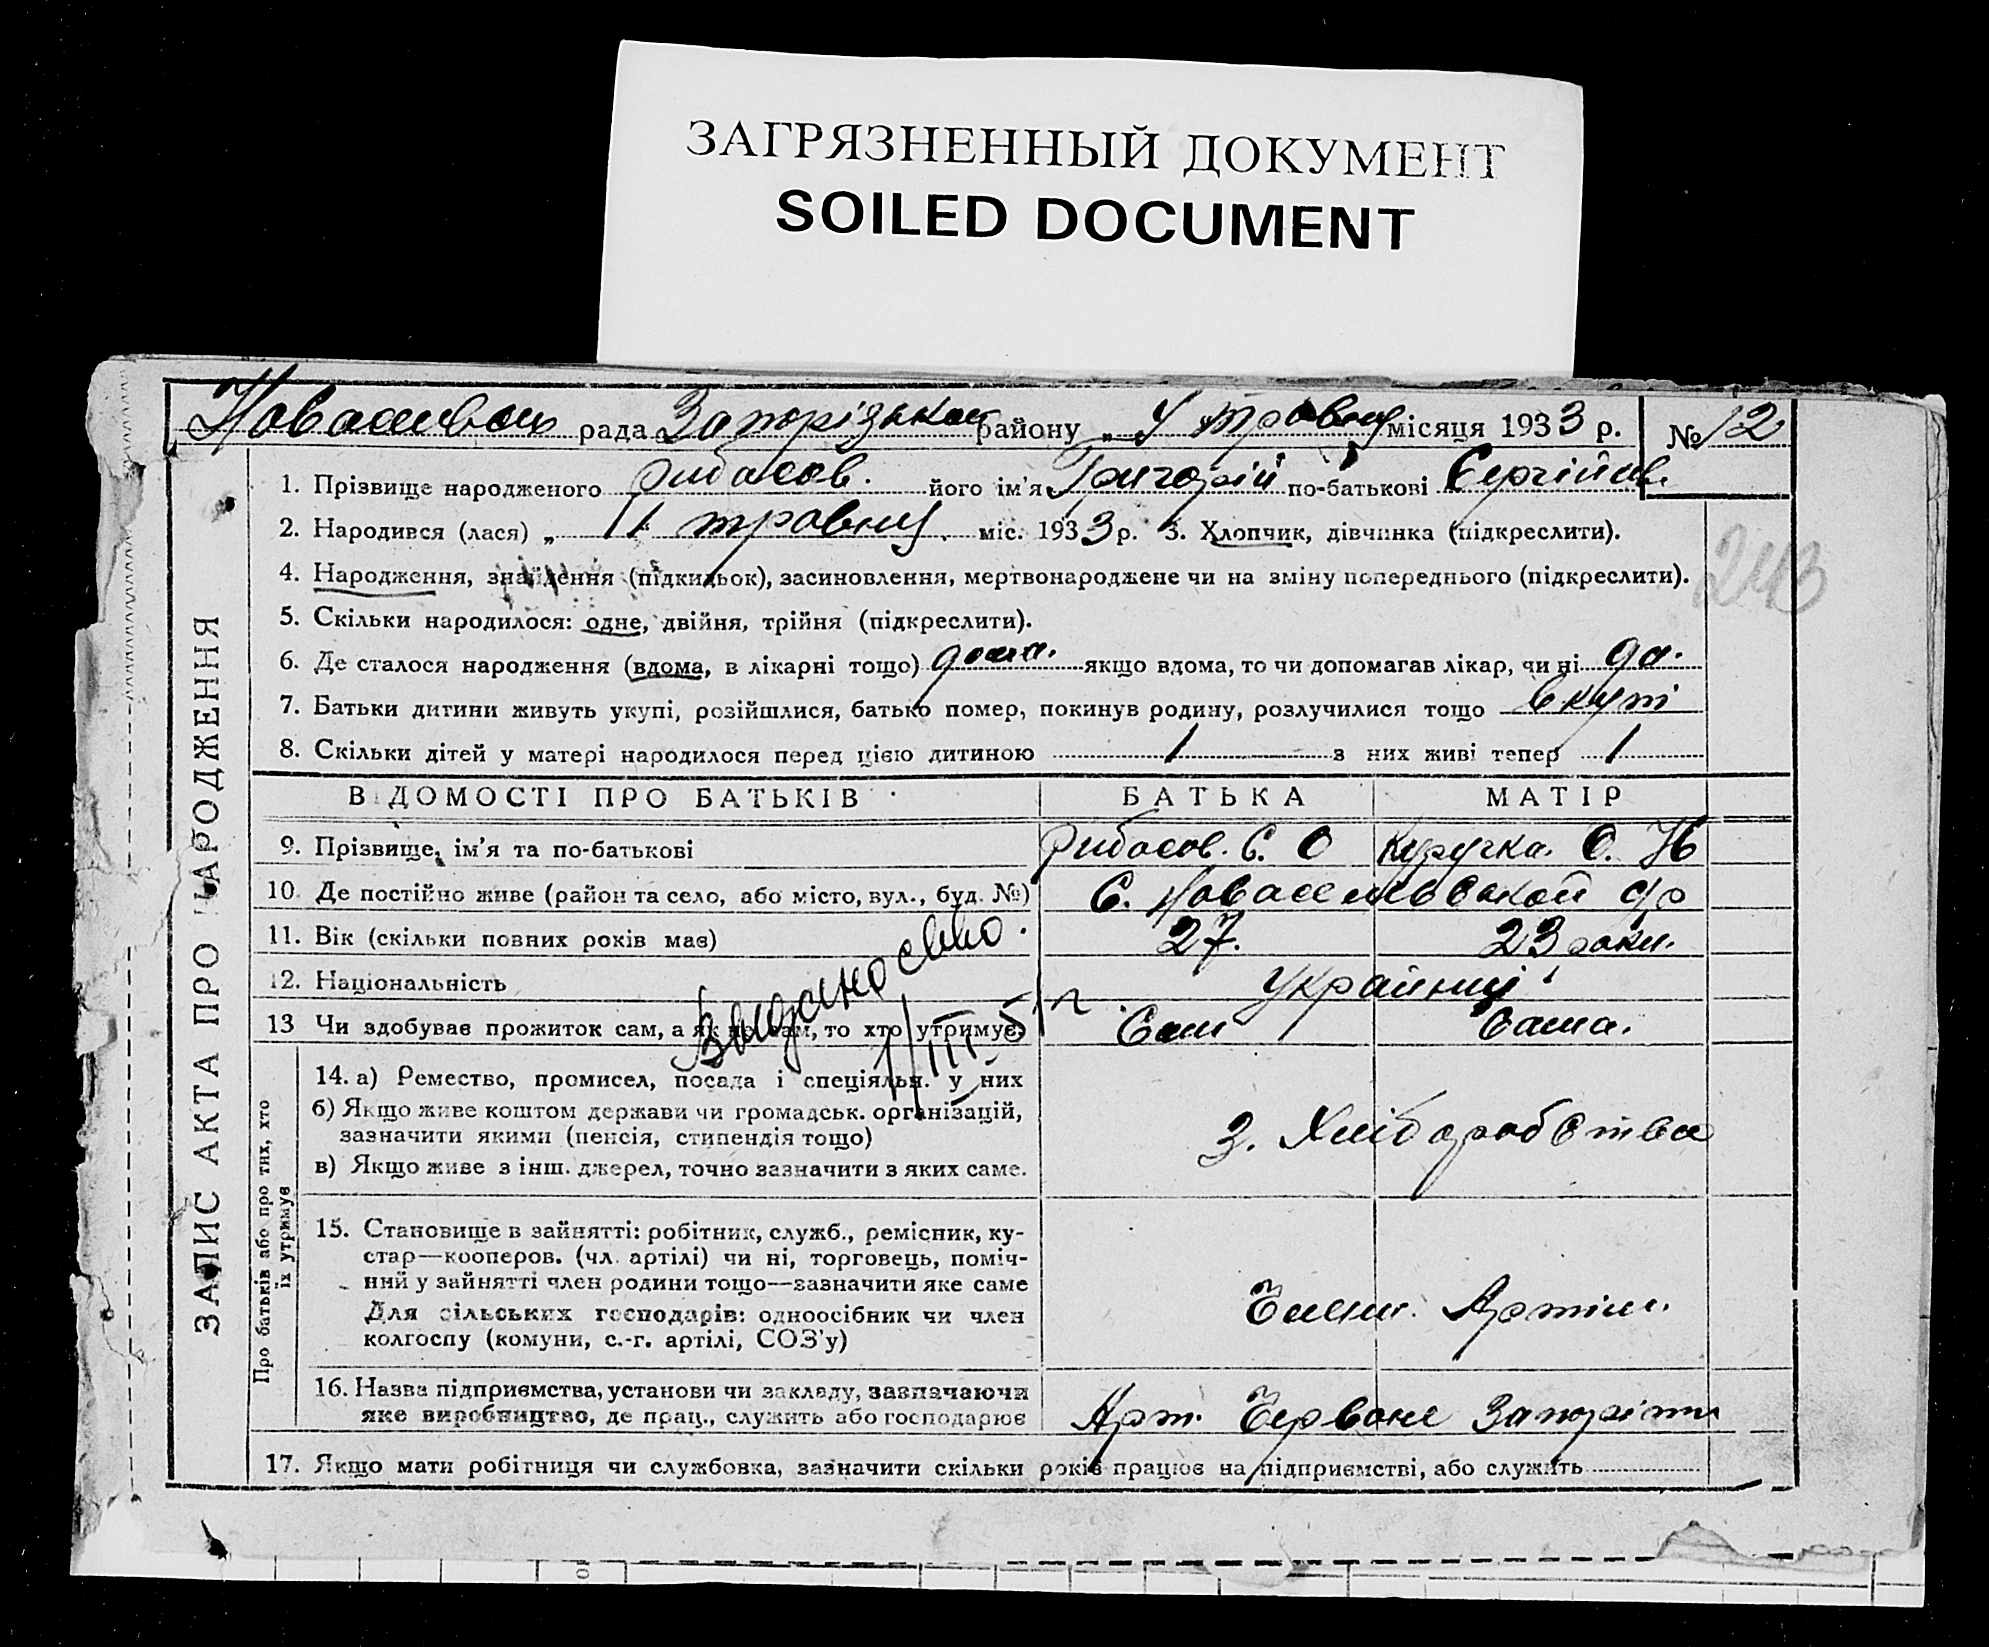 ЗАГРЯЗНЕННЫЙ ДОКУМЕНТ
SOILED DOCUMENT
рада Запорізького району „ травня місяця 1933 р. № 12
1. Прізвище народженого Рибасов. його ім'я Григорій по-батькові Сергійов
2. Народився (лася) „ 1 травня міс. 1933 р. 3. Хлопчик, дівчинка (підкреслити).
243
4. Народження, знайдення (підкидьок), засиновлення, мертвонароджене чи на зміну попереднього (підкреслити).
5. Скільки народилося: одне, двійня, трійня (підкреслити).
6. Де сталося народження (вдома, в лікарні тощо) дома. якщо вдома, то чи допомагав лікар, чи ні да.
7. Батьки дитини живуть укупі, розійшлися, батько помер, покинув родину, розлучилися тощо вкупі
8. Скільки дітей у матері народилося перед цією дитиною 1 з них живі тепер 1
ВІДОМОСТІ ПРО БАТЬКІВ БАТЬКА МАТІР
9. Прізвище, ім'я та по-батькові Рибасов. С. О Куручка. О. Н
10. Де постійно живе (район та село, або місто, вул., буд. №) С.
11. Вік (скільки повних років має) 27. 23 роки.
12. Національність Українці
13 Чи здобуває прожиток сам, а як не сам, то хто утримує. Сам Сама.
Видано свво.
14. а) Ремество, промисел, посада і спеціяльн. у них
б) Якщо живе коштом держави чи громадськ. організацій,
зазначити якими (пенсія, стипендія тощо)
в) Якщо живе з інш. джерел, точно зазначити з яких саме.
З. Хліборобства
15. Становище в зайнятті: робітник, служб., ремісник, ку-
стар—кооперов. (чл. артілі) чи ні, торговець, поміч-
ний у зайнятті член родини тощо—зазначити яке саме
Для сільських господарів: одноосібник чи член
колгоспу (комуни, с.-г. артілі, СОЗ'у)
Члени. Артіли.
16. Назва підприємства, установи чи закладу, зазначаючи
яке виробництво, де прац., служить або господарює
Арт. Червоне Запоріжжя
17. Якщо мати робітниця чи службовка, зазначити скільки років працює на підприємстві, або служить
ЗАПИС АКТА ПРО НАРОДЖЕННЯ
Про батьків або про тих, хто
їх утримує